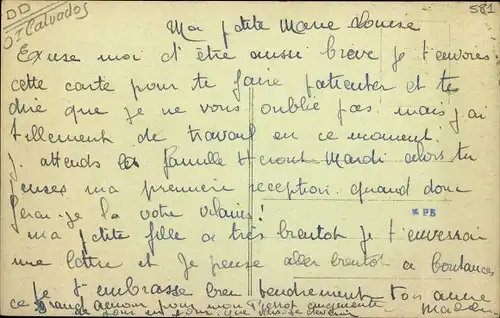 DD
Df Calvados
581
Ma petite Marie Louise
Excuse moi d'être aussi brève je t'envoies
cette carte pour te faire patienter et te
dire que je ne vous oublie pas, mais j'ai
tellement de travail en ce moment.
j'attends la famille Mardi alors tu
penses ma première reception quand donc
ferai-je la votre vilains!
ma petite fille a très bientot je t'enverrai
une lettre et je pense aller bientot a Coutances
je t'embrasse bien tendrement ton amie
ce grand amour pour mon augmente
de jour en jour que